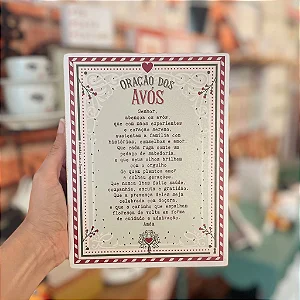 ORAÇÃO DOS
AVÓS
Senhor,
abençoa os avós
que com mãos experientes
e coração sereno,
sustentam a família com
histórias, conselhos e amor.
Que cada ruga conte um
pedaço de sabedoria,
e que seus olhos brilhem
com o orgulho
de quem plantou amor
e colheu gerações.
Que nunca lhes falte saúde,
companhia, escuta e gratidão.
Que a presença deles seja
celebrada com doçura,
e que o carinho que espalham
floresça de volta em forma
de cuidado e admiração.
Amém